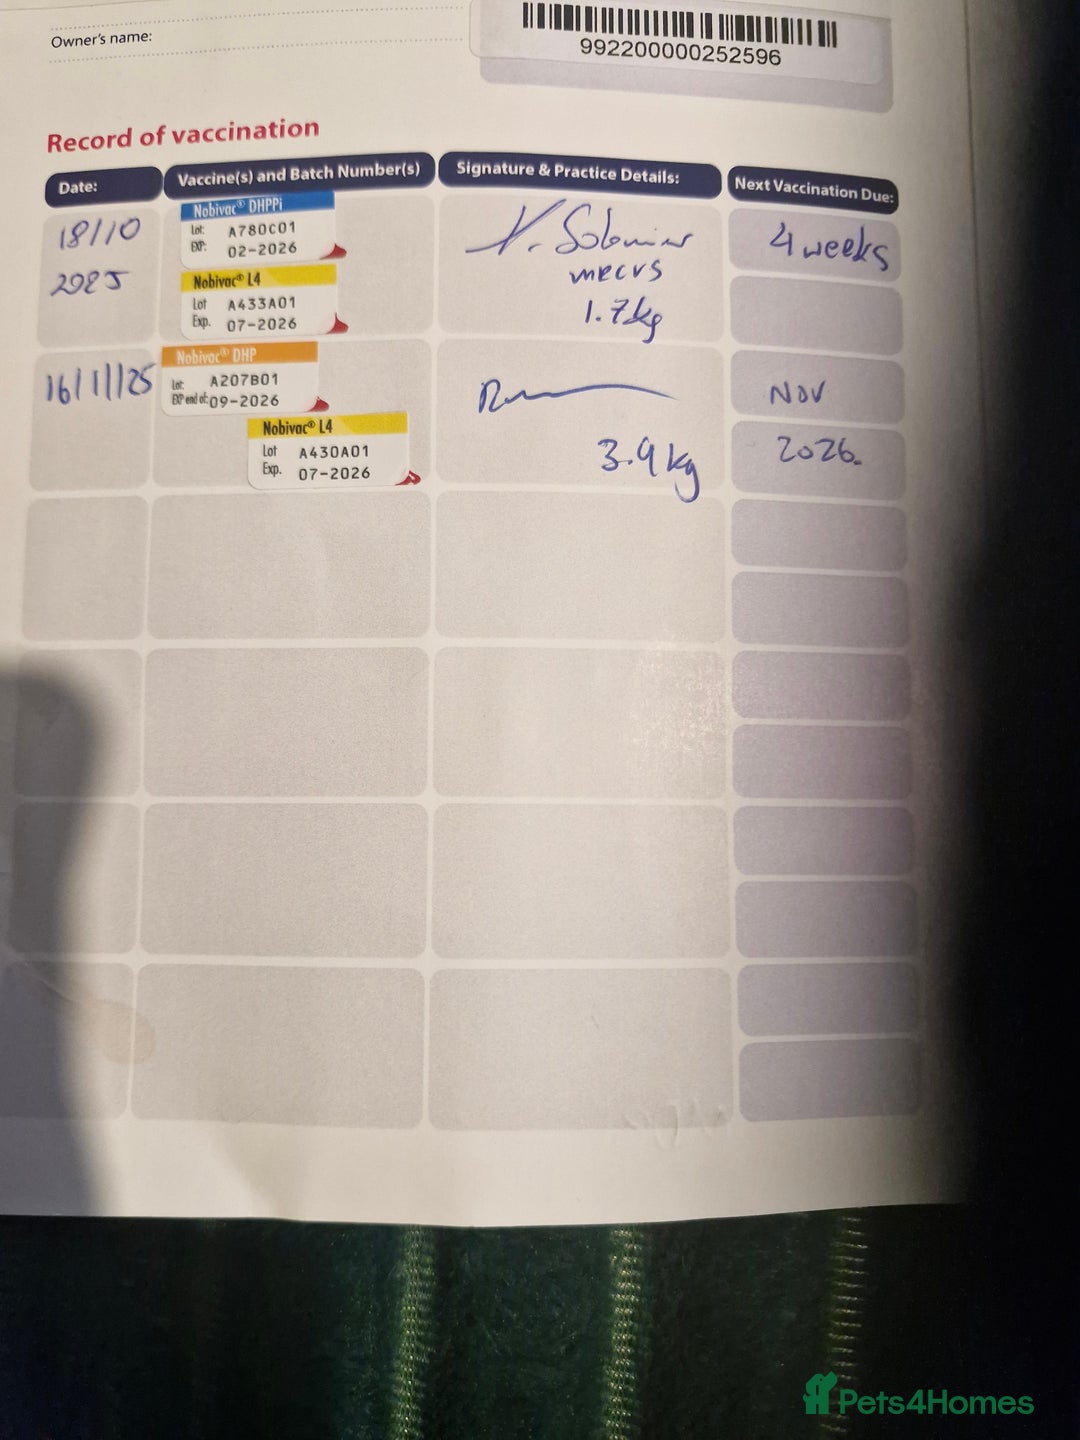 Owner's name:
992200000252596
Record of vaccination
Date:
Vaccine(s) and Batch Number(s)
Signature & Practice Details:
Next Vaccination Due:
18/10
2025
Nobivac® DHPPi
Lot: A780C01
EXP: 02-2026
Nobivac® L4
Lot A433A01
Exp. 07-2026
MRCVS
1.7kg
4 weeks
16/11/25
Nobivac® DHP
Lot: A207B01
EXP end of: 09-2026
Nobivac® L4
Lot A430A01
Exp. 07-2026
3.9kg
Nov
2026.
Pets4Homes